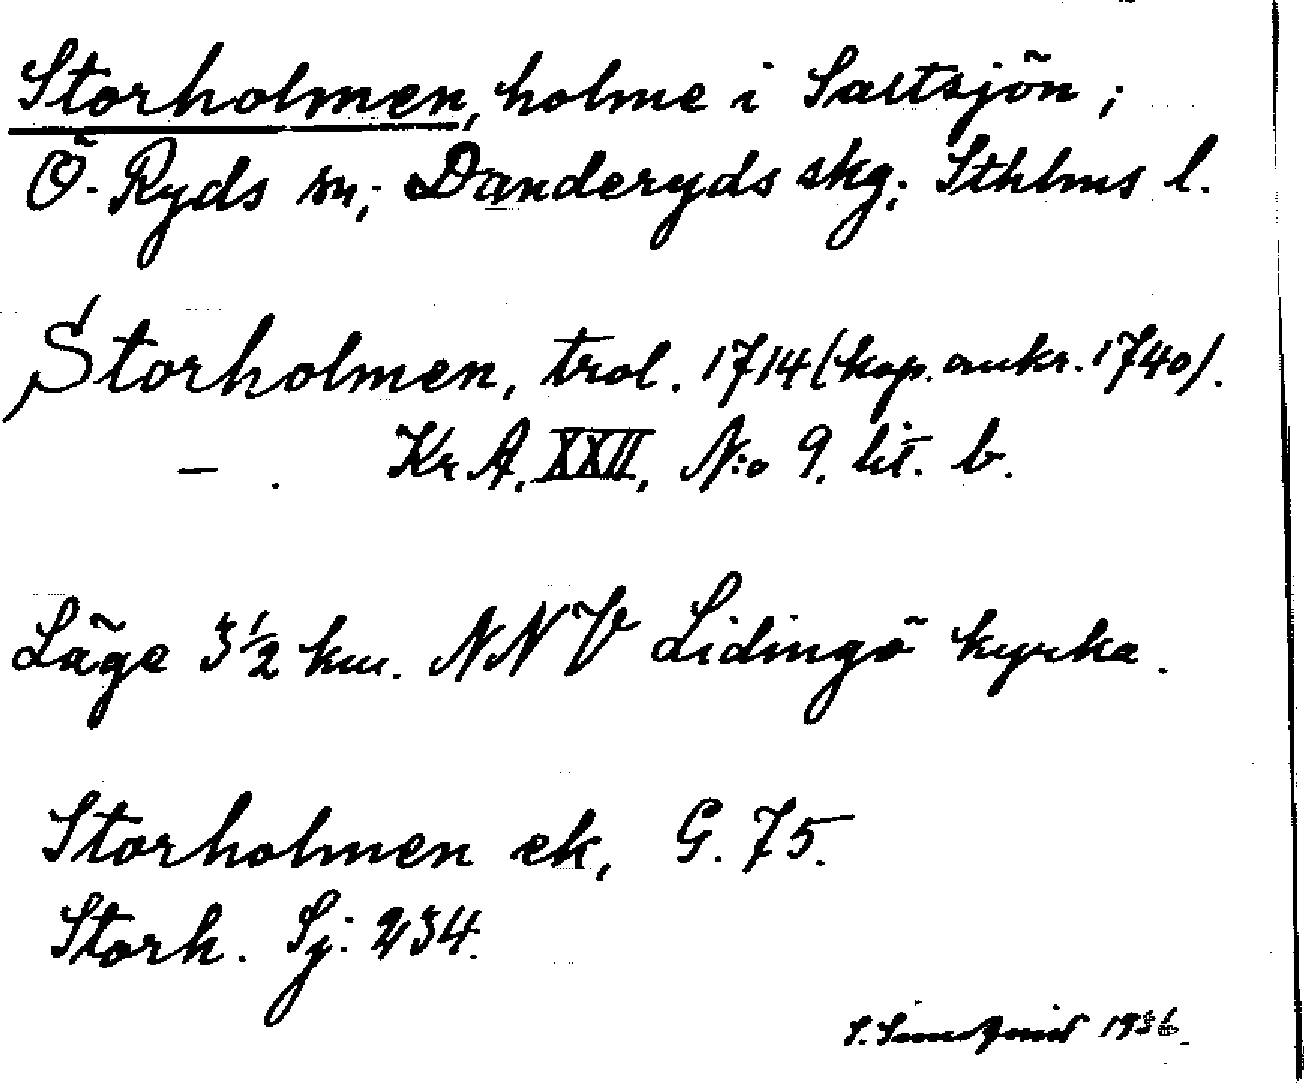 Storholmen, holme i Saltsjön;
Ö. Ryds sn; Danderyds skg; Sthlms l.
Storholmen, trol. 1714 (kop. omkr. 1740).
— . Kr A, XXII, N:o 9. lit. b.
Läge 3½ km. NNV Lidingö kyrka.
Storholmen ek, G. 75.
Stork. Sj: 234.
S. 1936.